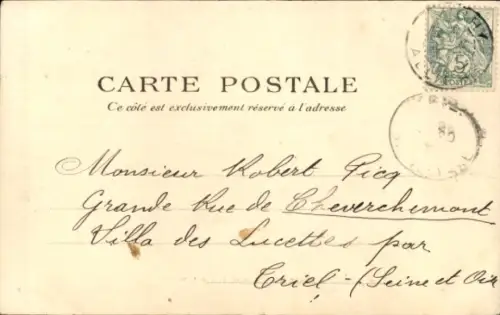 CARTE POSTALE
Ce côté est exclusivement réservé à l'adresse
Monsieur Robert Picq
Grande Rue de Cheverchemont
Villa des Lucettes par
Triel - (Seine et Oise
5